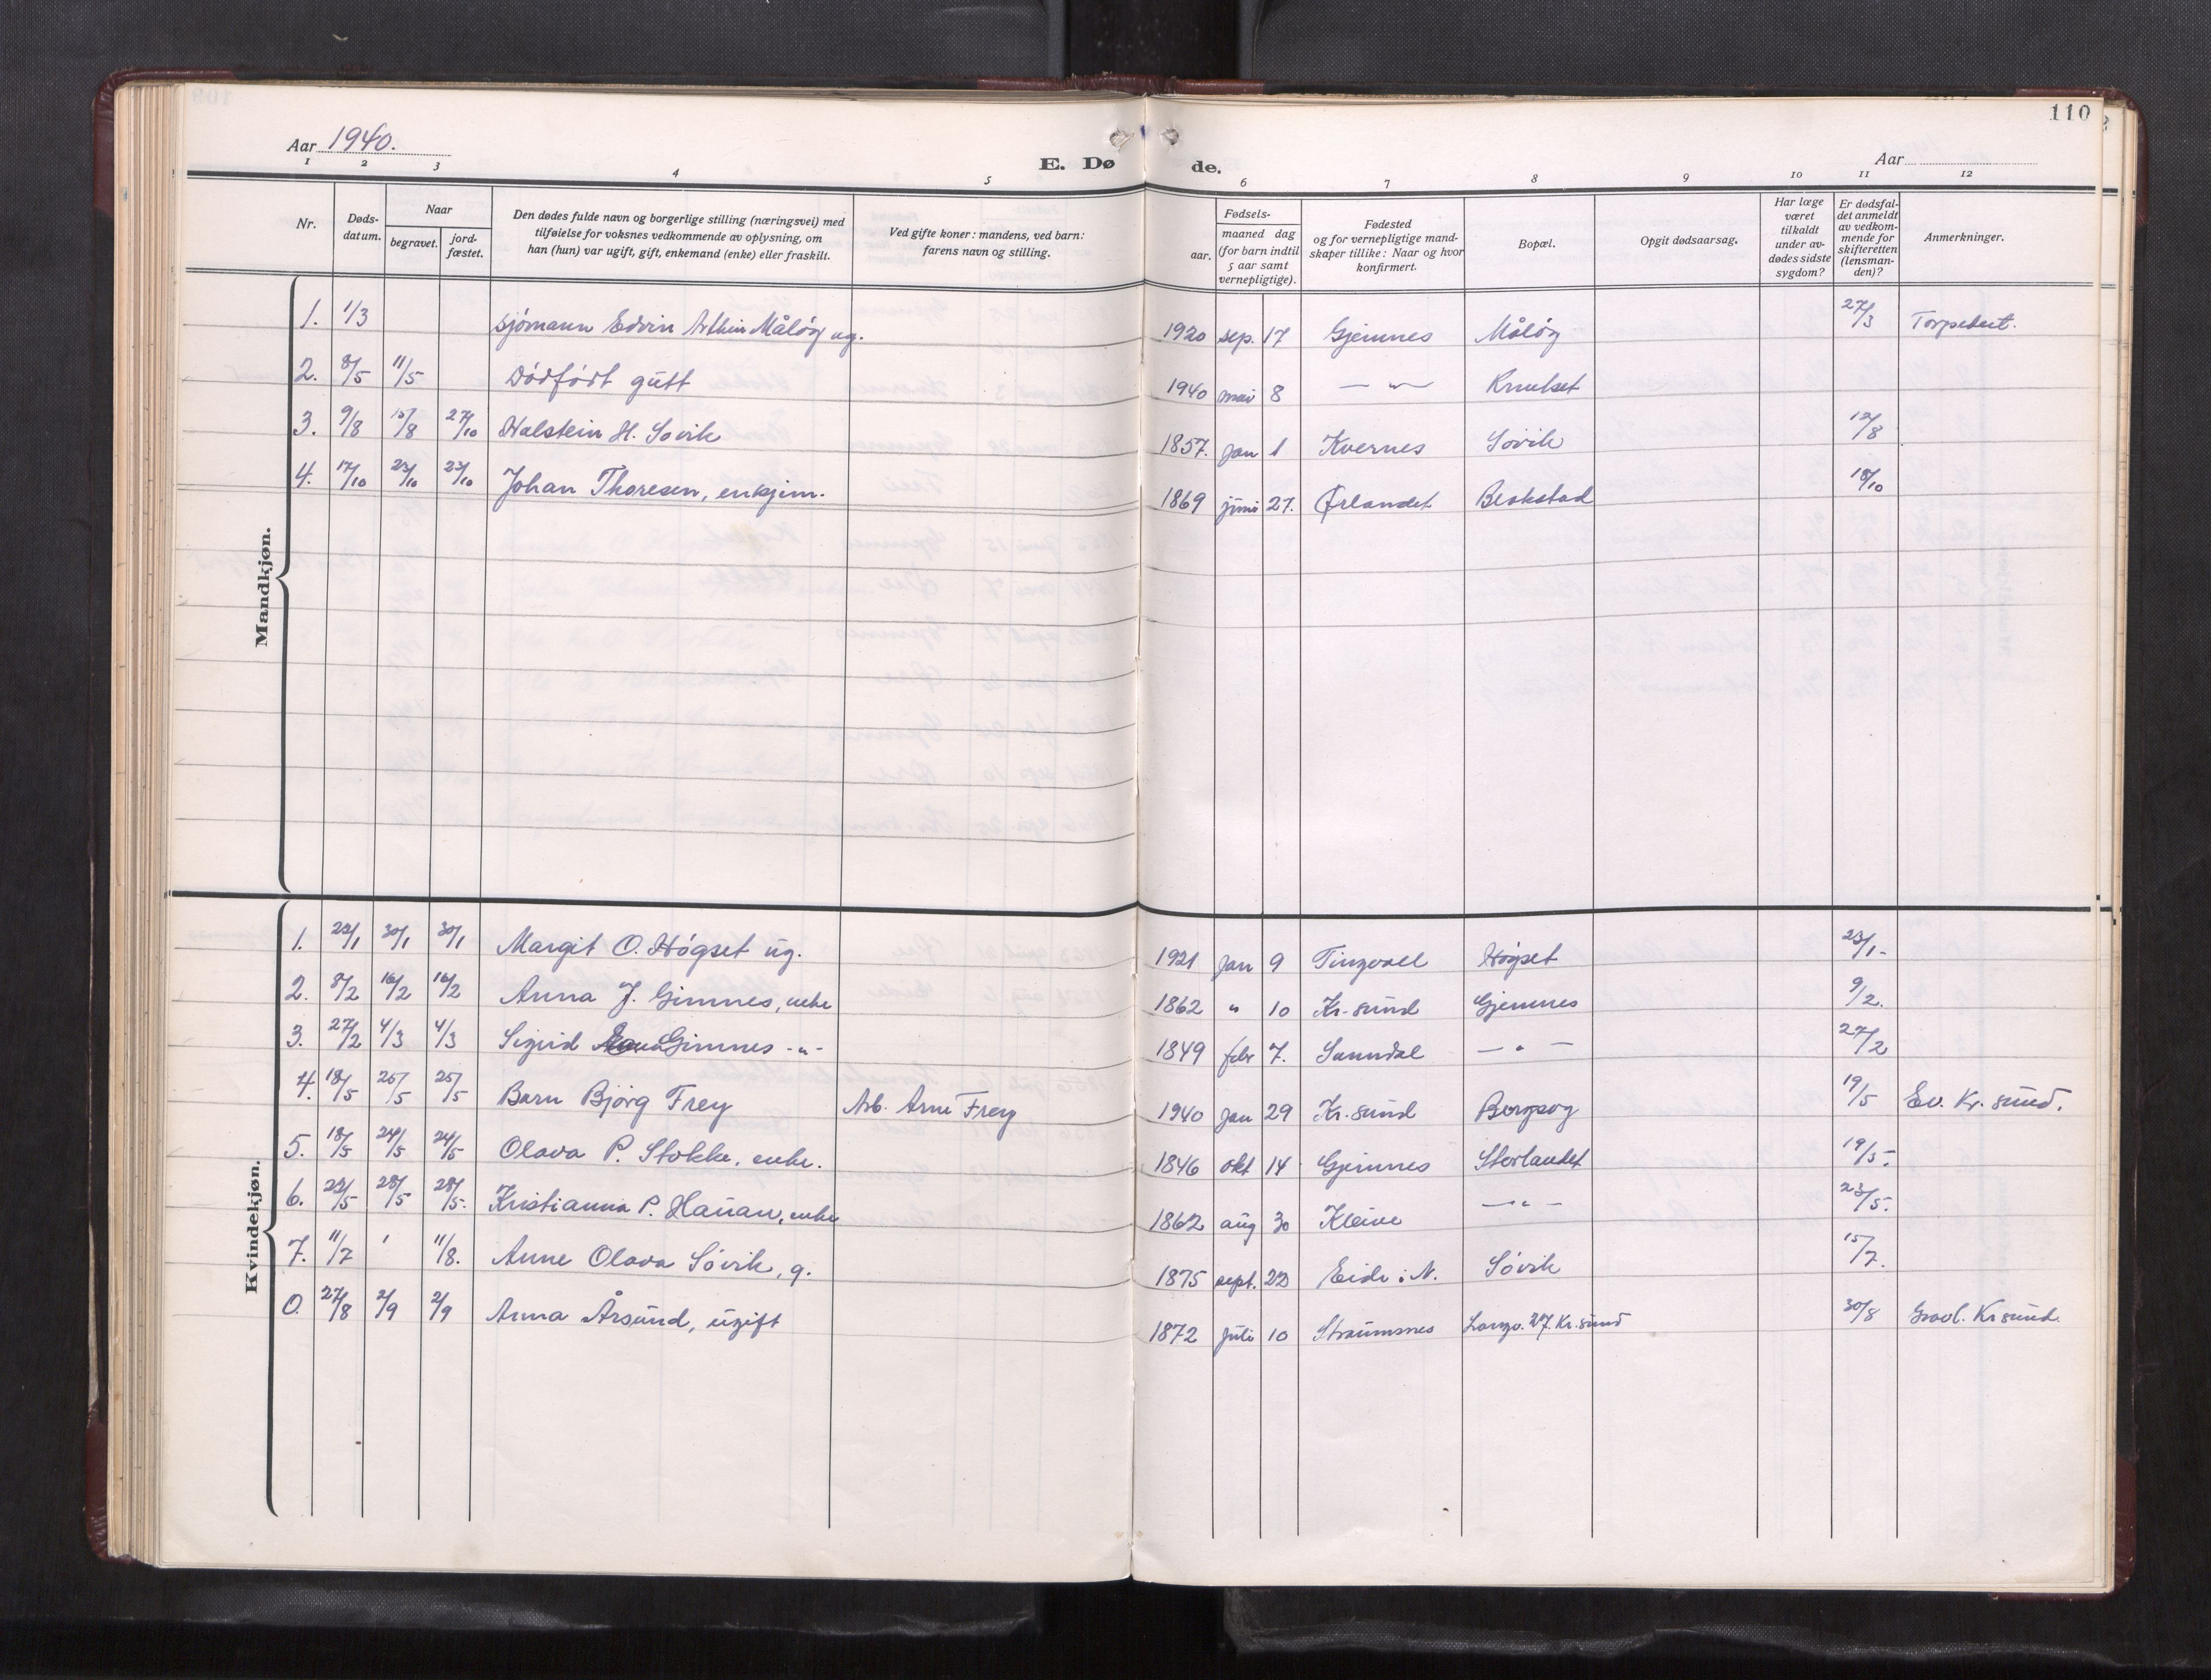 110
Aar 1940.
E. Dø de.
Aar
1 2 3 4 5 6 7 8 9 10 11 12
Nr.
Døds-
datum.
Naar
begravet.
jord-
fæstet.
Den dødes fulde navn og borgerlige stilling (næringsvei) med
tilføielse for voksnes vedkommende av oplysning, om
han (hun) var ugift, gift, enkemand (enke) eller fraskilt.
Ved gifte koner: mandens, ved barn:
farens navn og stilling.
Fødsels-
aar.
maaned dag
(for barn indtil
5 aar samt
vernepligtige).
Fødested
og for vernepligtige mand-
skaper tillike: Naar og hvor
konfirmert.
Bopæl.
Opgit dødsaarsag.
Har læge
været
tilkaldt
under av-
dødes sidste
sygdom?
Er dødsfal-
det anmeldt
av vedkom-
mende for
skifteretten
(lensman-
den)?
Anmerkninger.
Mandkjøn.
1. 1/3 sjømann Edvin Arthur Måløy ug. 1920 sep. 17 Gjemnes Måløy 27/3 Torpedert.
2. 8/5 11/5 Dødfødt gutt 1940 mai 8 — " — Knutset
3. 9/8 15/8 27/10 Halstein H. Søvik 1857. jan 1 Kvernes Søvik 12/8
4. 17/10 23/10 23/10 Johan Thoresen, enkjem. 1869 juni 27. Ørlandet Blakstad 18/10
Kvindekjøn.
1. 22/1 30/1 30/1 Margit O. Høgset ug. 1921 jan 9 Tingvoll Høgset 23/1-
2. 8/2 16/2 16/2 Anna J. Gimnes, enke 1862 " 10 Kr. sund Gjemnes 9/2.
3. 27/2 4/3 4/3 Sigrid Gimnes - " - 1849 febr 7. Sunndal — " — 27/2
4. 18/5 25/5 25/5 Barn Bjørg Frey Arb. Arne Frey 1940 jan 29 Kr. sund Bergsøy 19/5 Ev. Kr. sund.
5. 18/5 24/5 24/5 Olava P. Stokke, enke. 1846 okt 14 Gjemnes Storlandet 19/5-
6. 22/5 28/5 28/5. Kristianna P. Hauan, enke 1862 aug 30 Kleive — " — 23/5.
7. 11/7 11/8. Anne Olava Søvik, g. 1875 sept. 22 Eide i N. Søvik 15/7.
0. 27/8 2/9 2/9 Anna Årsund, ugift 1872 juli 10 Straumsnes Langv. 27. Kr. sund 30/8 Gravl. Kr sund.